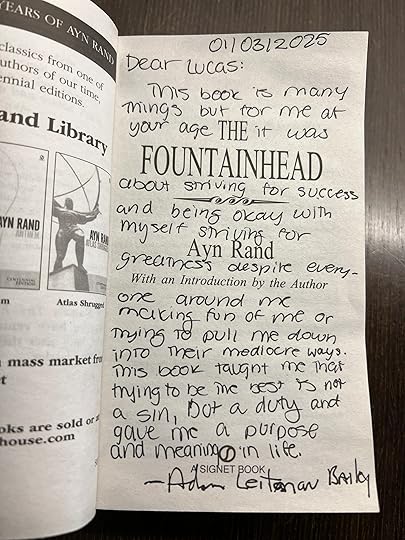 YEARS OF AYN RAND
classics from one of
authors of our time,
ennial editions.
and Library
AYN RAND
CENTENNIAL
EDITION
AYN RAND
ATLAS SHRUGGED
Atlas Shrugged
mass market
ooks are sold or
house.com
01/03/2025
Dear Lucas:
This book is many
things but for me at
your age it was
THE
FOUNTAINHEAD
about striving for success
and being okay with
myself striving for
Ayn Rand
greatness despite every-
With an Introduction by the Author
one around me
making fun of me or
trying to pull me down
into their mediocre ways.
This book taught me that
trying to be the best is not
a sin, but a duty and
gave me a purpose
and meaning in life.
A SIGNET BOOK
—Adam Leitman Bailey